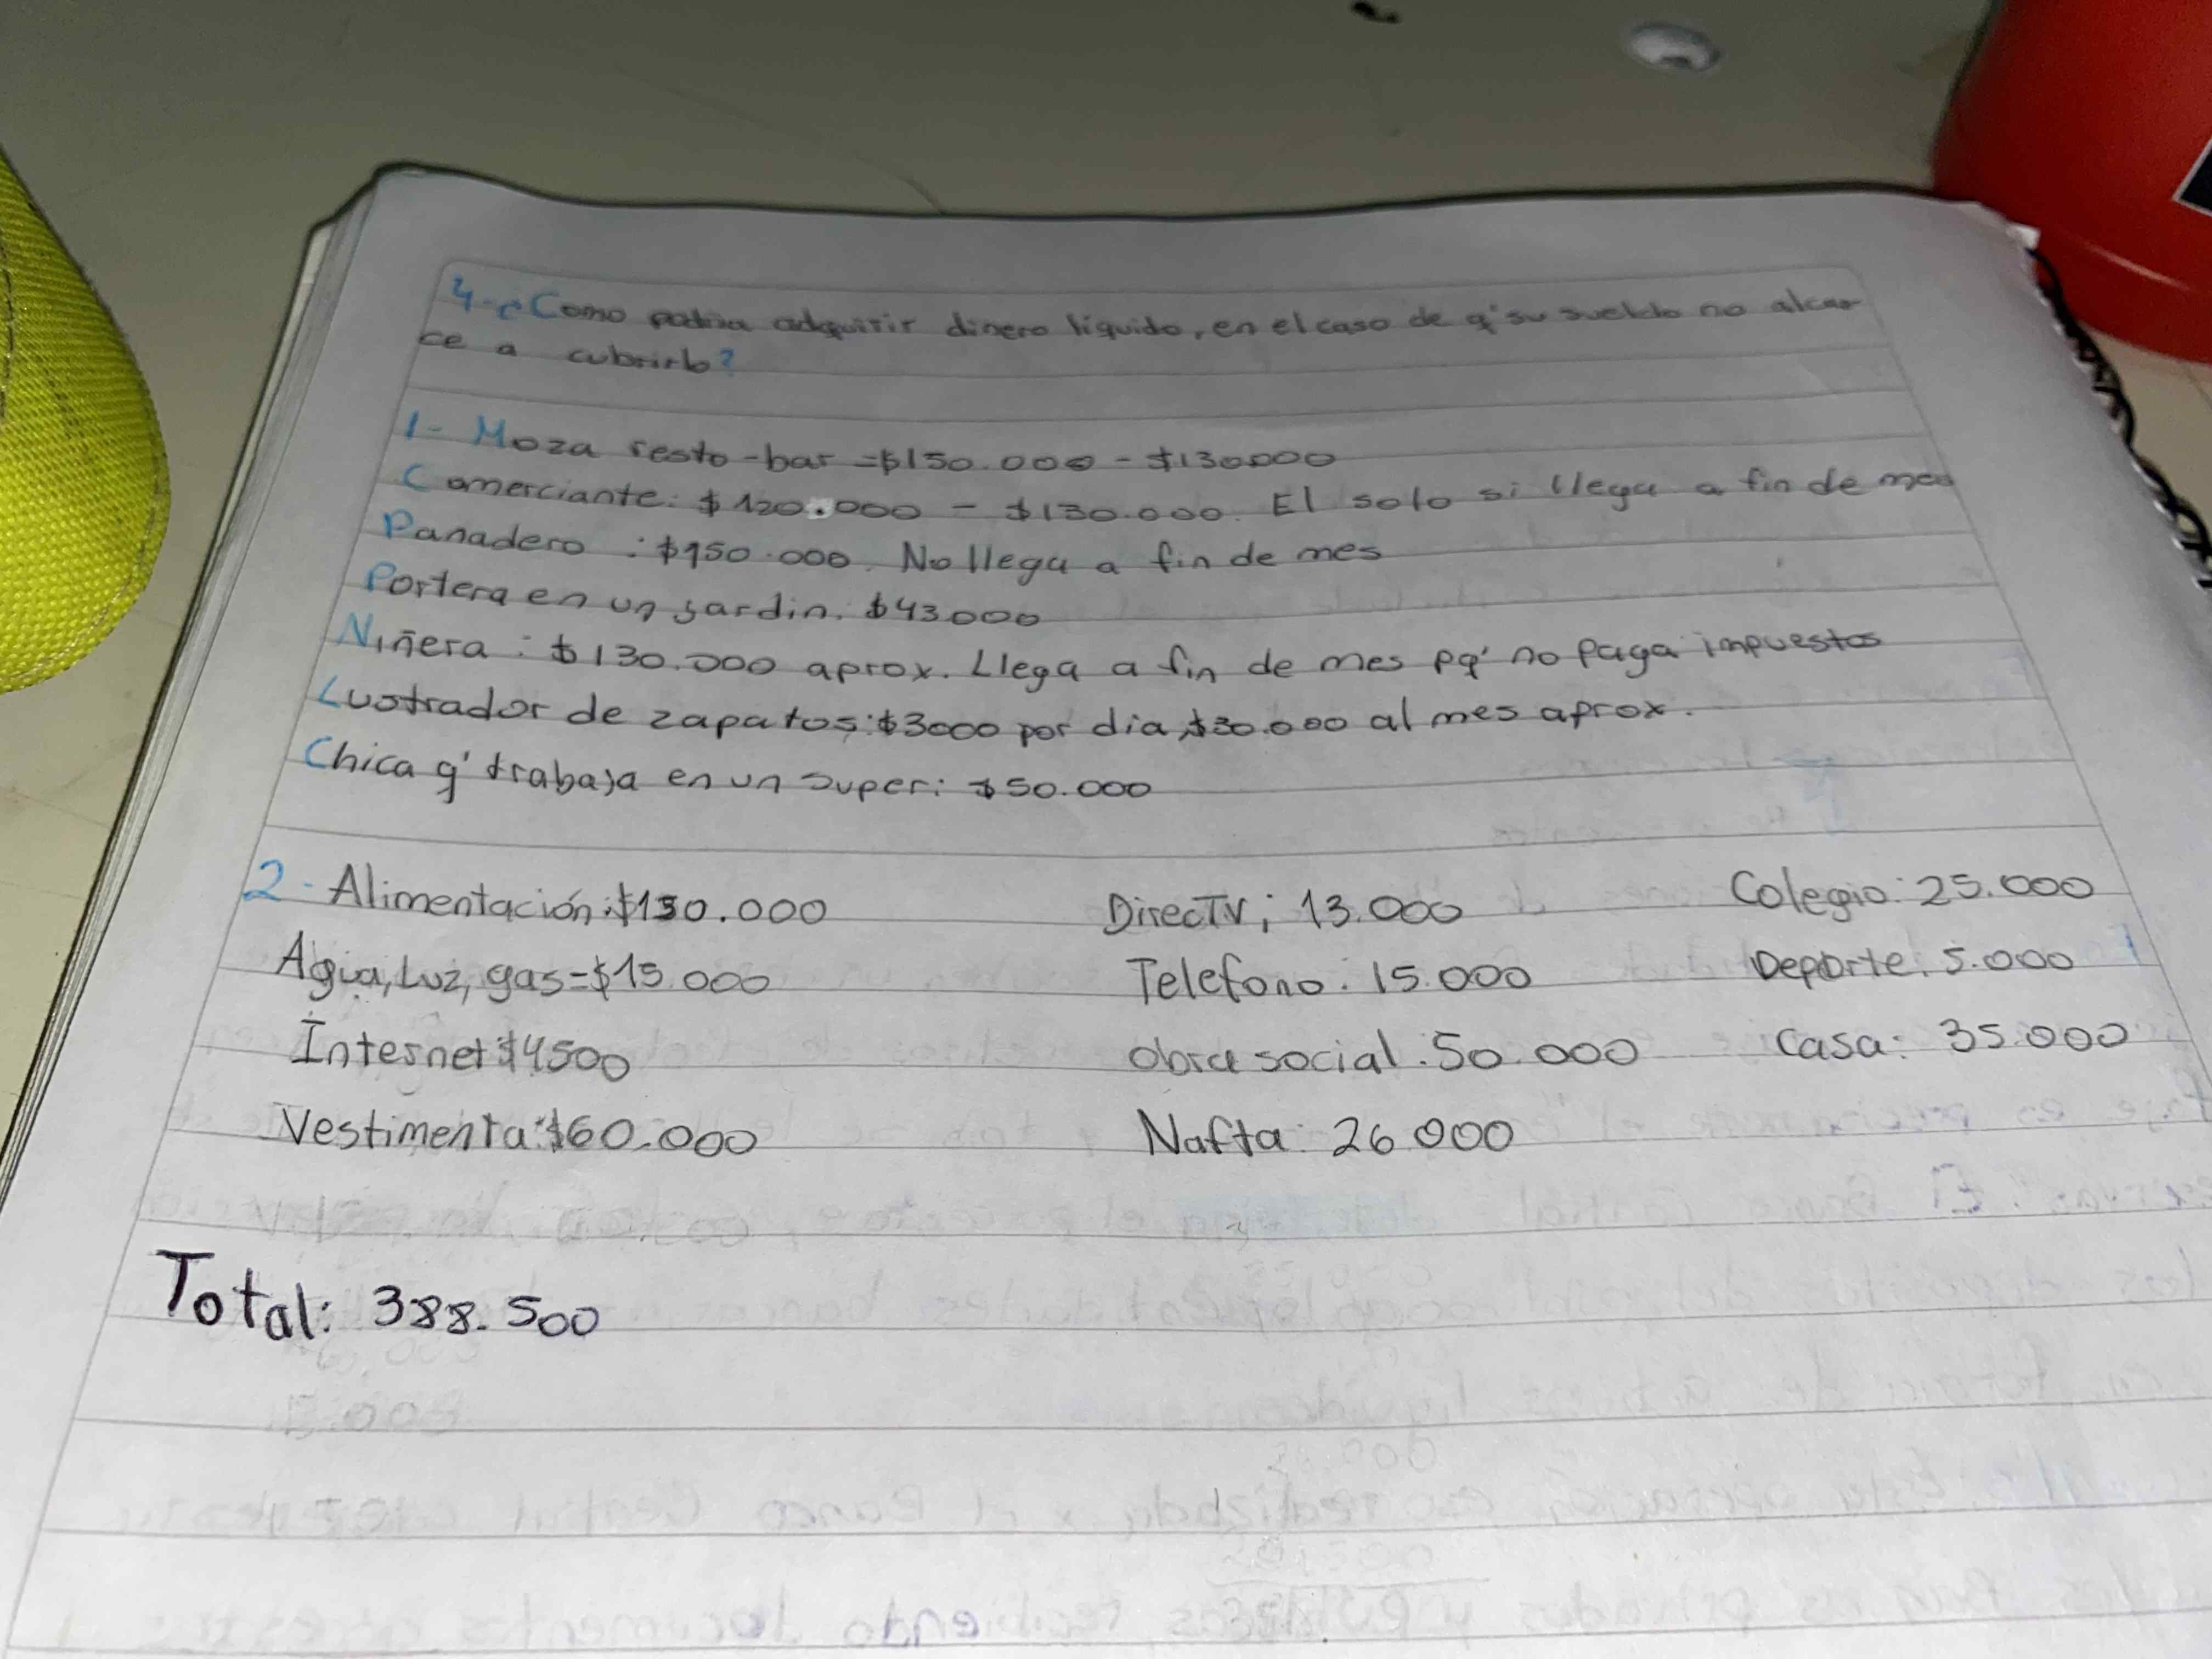 4-¿Como podria adquirir dinero líquido, en el caso de q' su sueldo no alcan-
ce a cubrirlo?
1- Moza resto-bar = $150.000 - $130000
Comerciante: $120.000 - $130.000. El solo si llega a fin de mes
Panadero : $150.000. No llega a fin de mes
Portera en un jardin. $43000
Niñera : $130.000 aprox. Llega a fin de mes pq' no paga impuestos
Lustrador de zapatos: $3000 por dia, $30.000 al mes aprox.
Chica q' trabaja en un super: $50.000
2- Alimentación: $130.000 DirecTV; 13.000 Colegio: 25.000
Agua, Luz, gas = $15.000 Telefono: 15.000 Deporte: 5.000
Internet $4500 Obra social: 50.000 Casa: 35.000
Vestimenta: $60.000 Nafta: 26.000
Total: 388.500